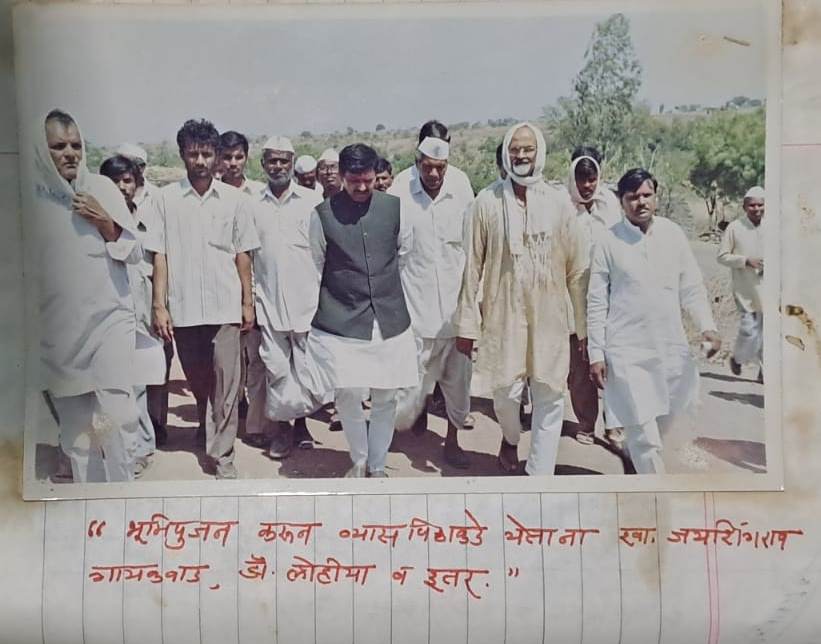 “ भूमिपुजन करून व्यासपिठाकडे येताना खा. जयसिंगराव
गायकवाड, डॉ. लोहीया व इतर. ”